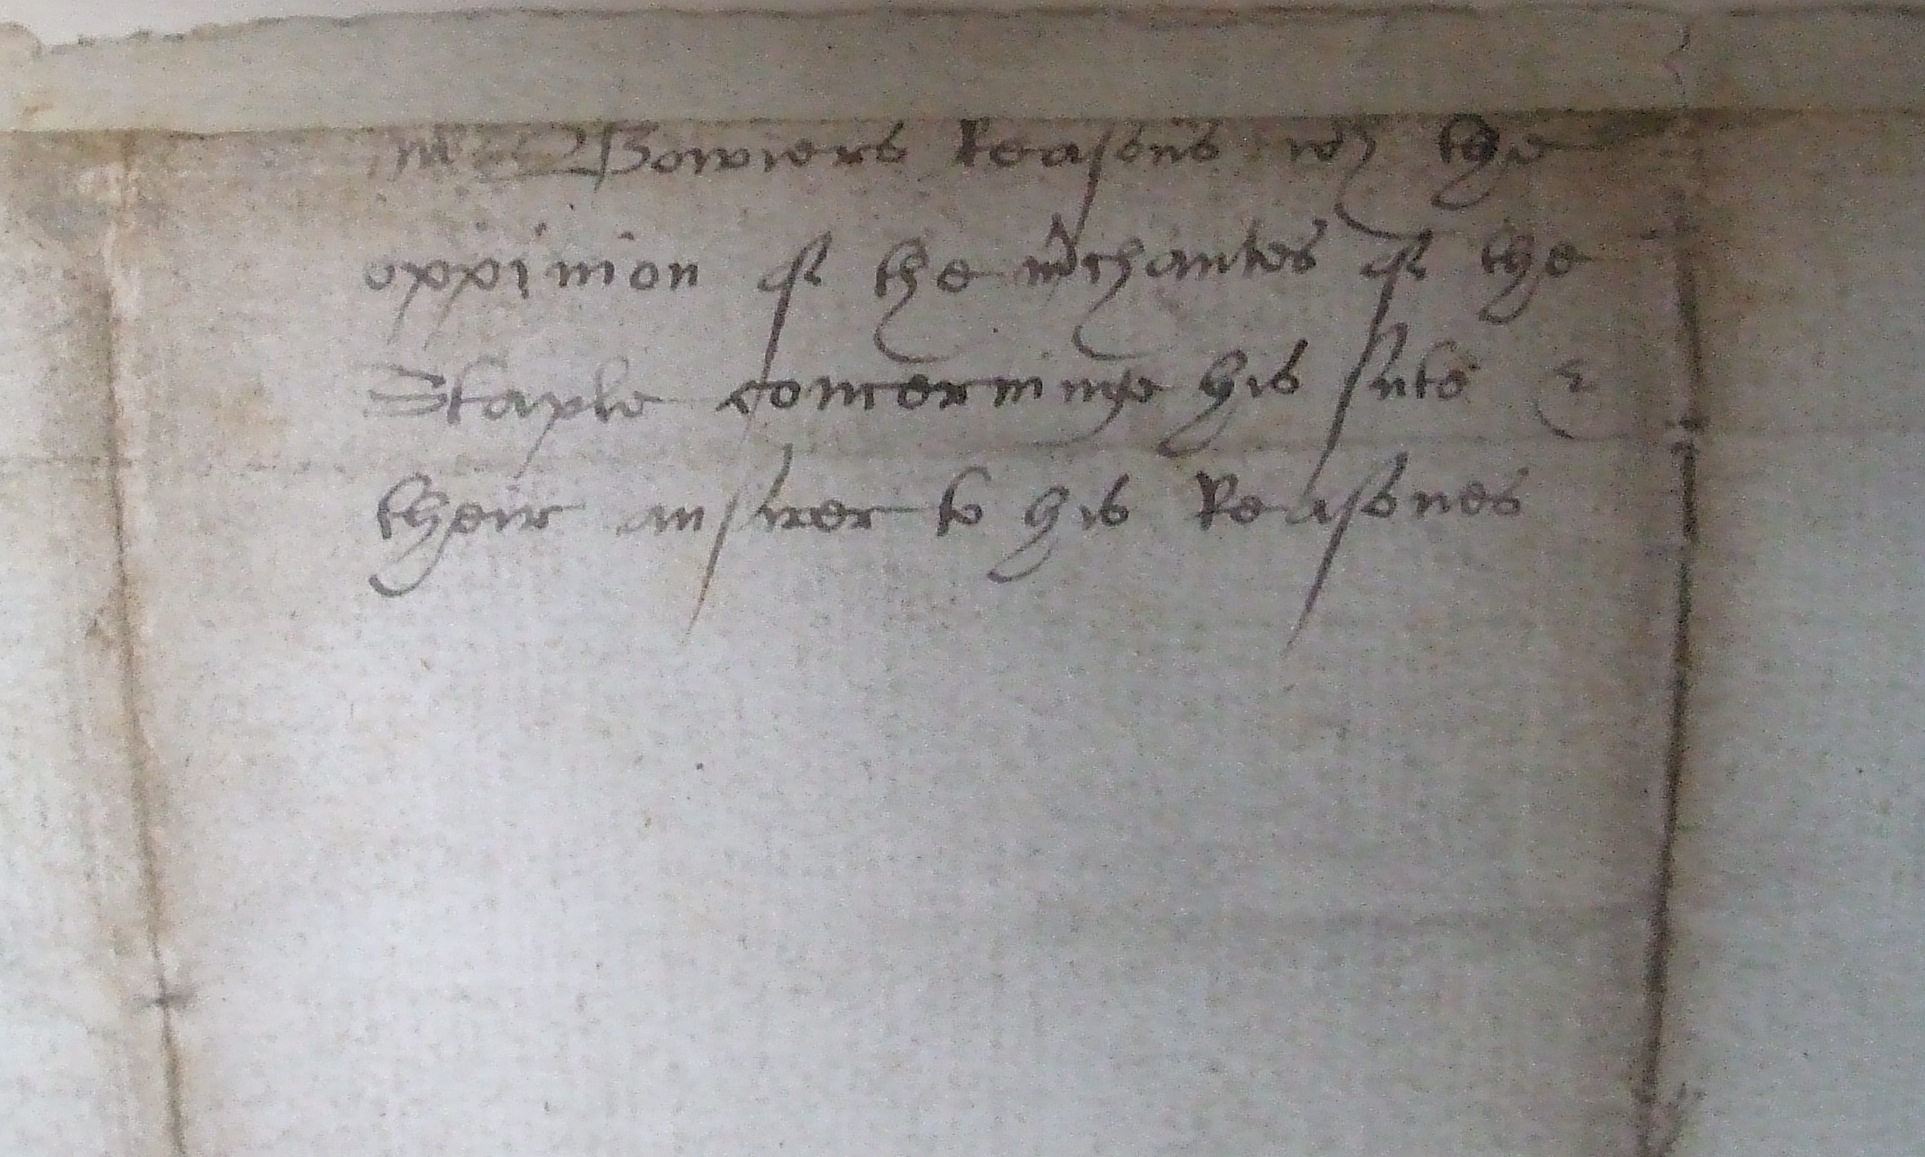 mr Bowiers Reasons wth the
oppinion of the mrchantes of the
Staple concerninge his sute &
their answer to his Reasones